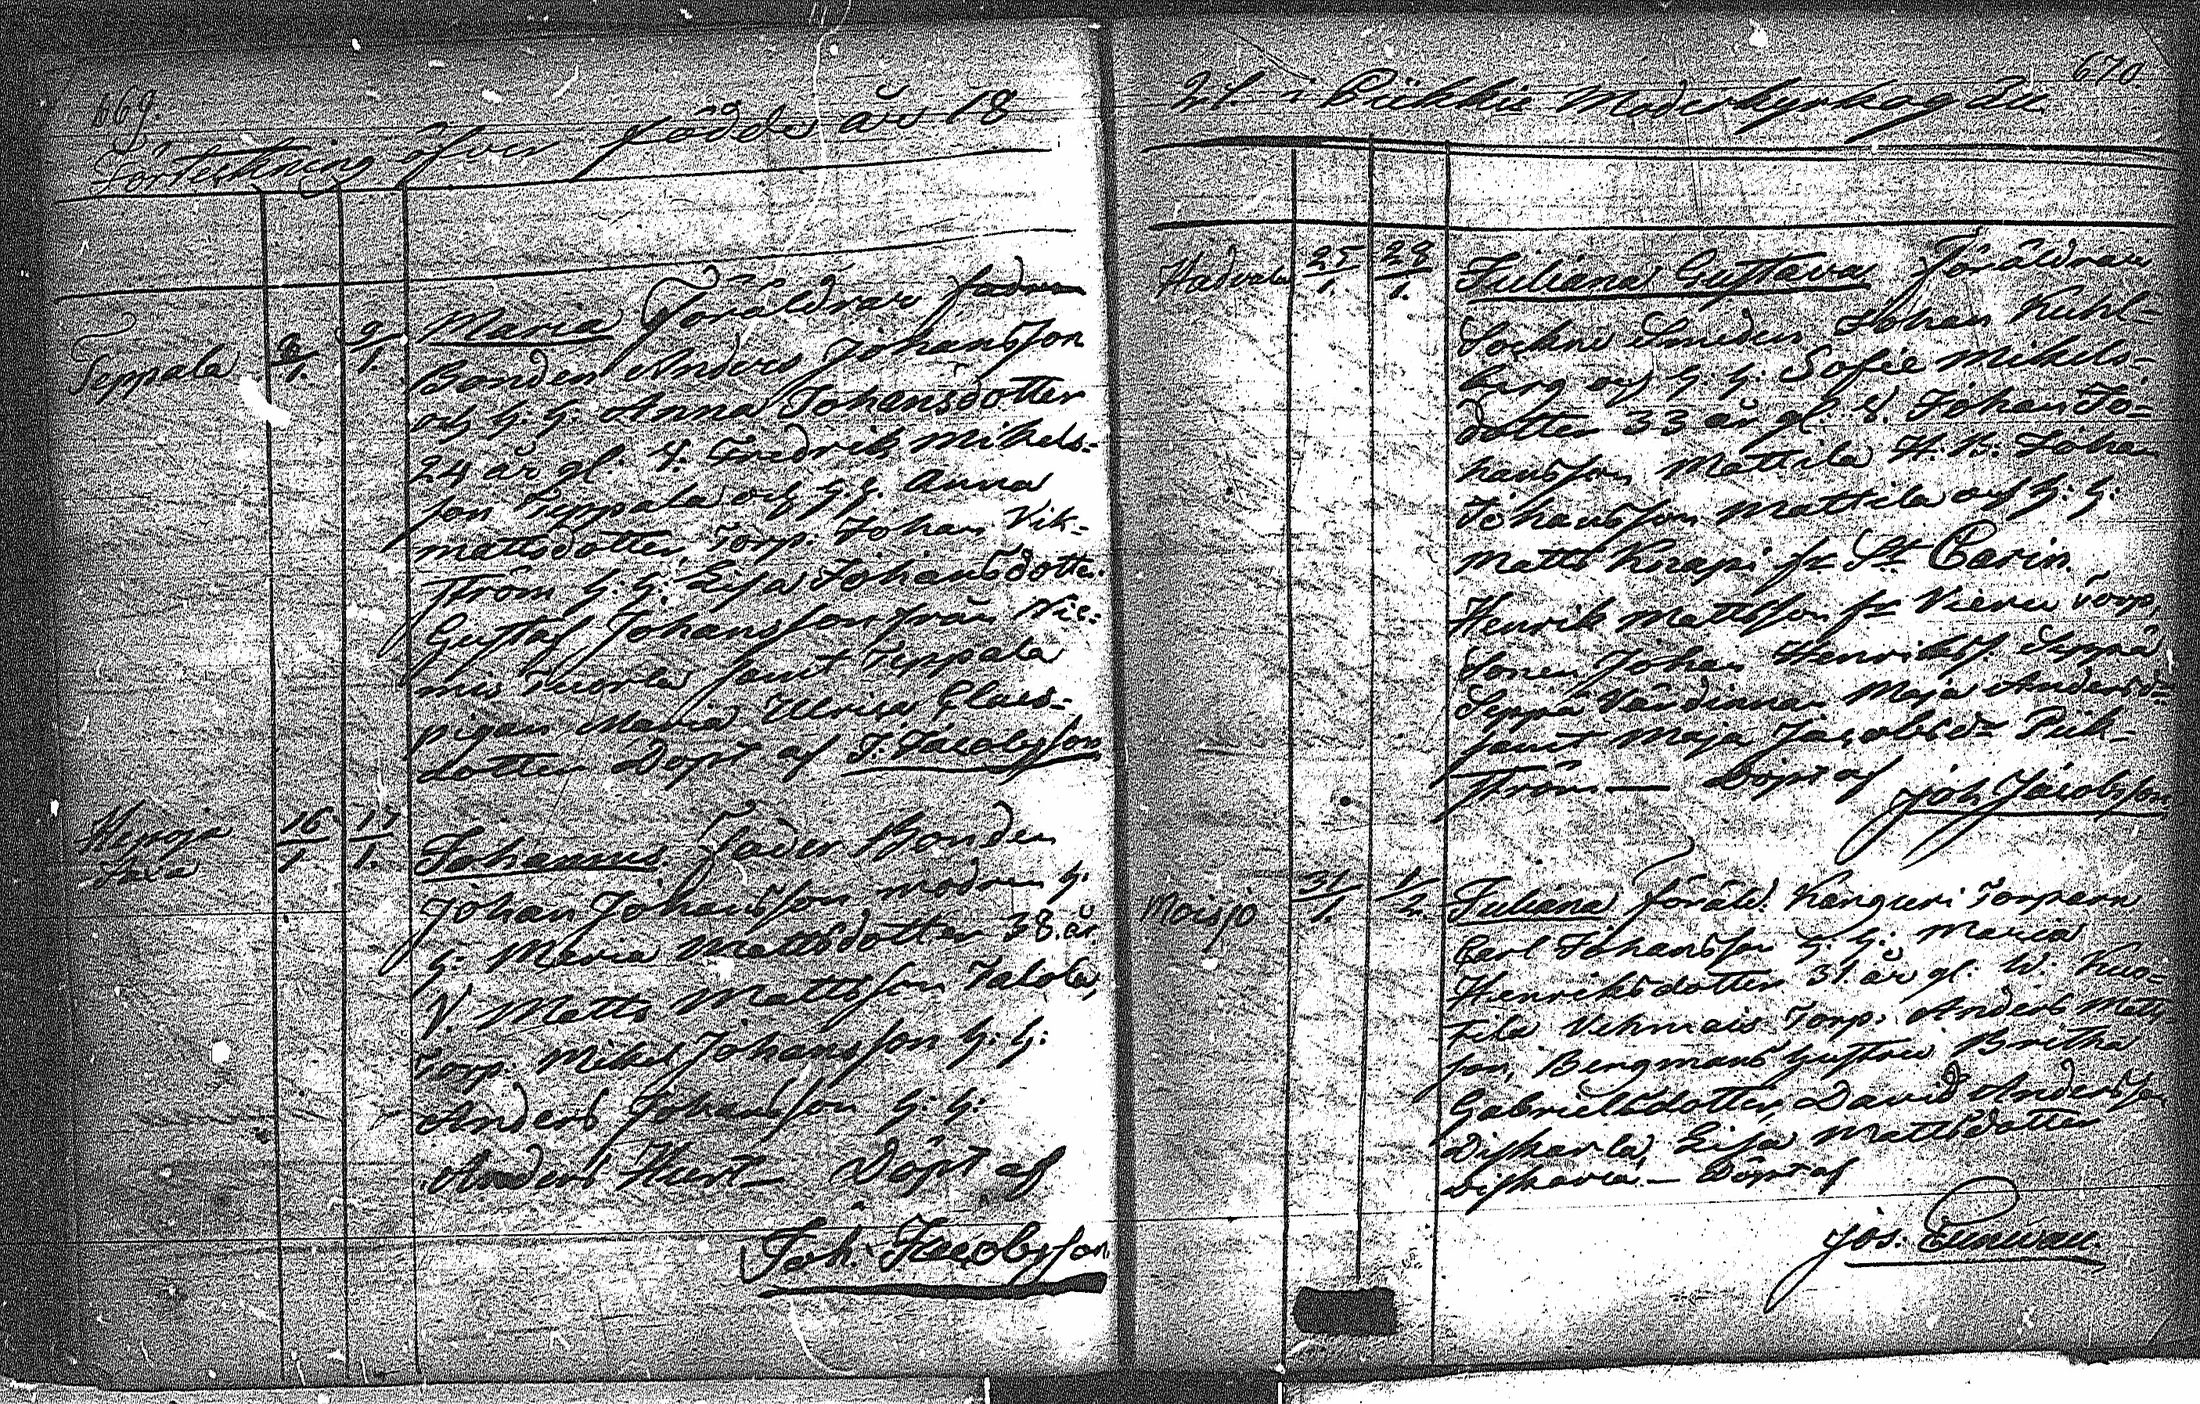 669.
Förteckning öfver födde års 18
Teppala 8/1. 9/1. Maria Föräldrar fadren
Bonden Anders Johansson
och h. h. Anna Johansdotter
24 år gl. V. Fredrik Mikels-
son Teppala och h. h. Anna
Mattsdotter, Torp. Johan Vik-
ström h: h: Lisa Johansdotter
Gustaf Johansson från Nie-
mis samt Teppala
pigan Maria Ulrica Claes-
dotter Döpt af J. Jacobsson
16/1 17/1. Johannes Fader Bonden
Johan Johansson modren h.
h: Maria Mattsdotter 38 år
V. Matts Mattsson Talola,
Torp. Mikel Johansson h: h:
Anders Johansson h: h:
Anders Hurt — Döpt af
Joh. Jacobsson
670.
i Piikkie Moderkyrkog
25/1. 28/1. Juliana Gustava Föräldrar
Sockne Smeden Johan Kuhl-
berg och h. h. Sofie Mikels-
dotter 33 år gl. V. Johan Jo-
hansson Mattila Johan
Johansson Mattila och h: h:
Matts Knapi fr. St. Carin.
Henrik Mattsson fr. Vieru Torp,
Sonen Johan Henrikss. Seppä
Seppä Värdinna Maja Andersdr
samt Maja Jacobsdr Piik-
ström — Döpt af
Joh. Jacobsson
Moisjo 31/1. 1/2. Juliana föräld. Kanguri Torparn
Carl Johansson h. h: Maria
Henriksdotter 31 år gl. W. Kus-
tila Vehmais Torp. Anders Matts-
son, Bergmans hustru Britha
Gabrielsdotter, David Andersson
Diskarla, Lisa Mattsdotter
Diskarla. — Döpt af
Jos.